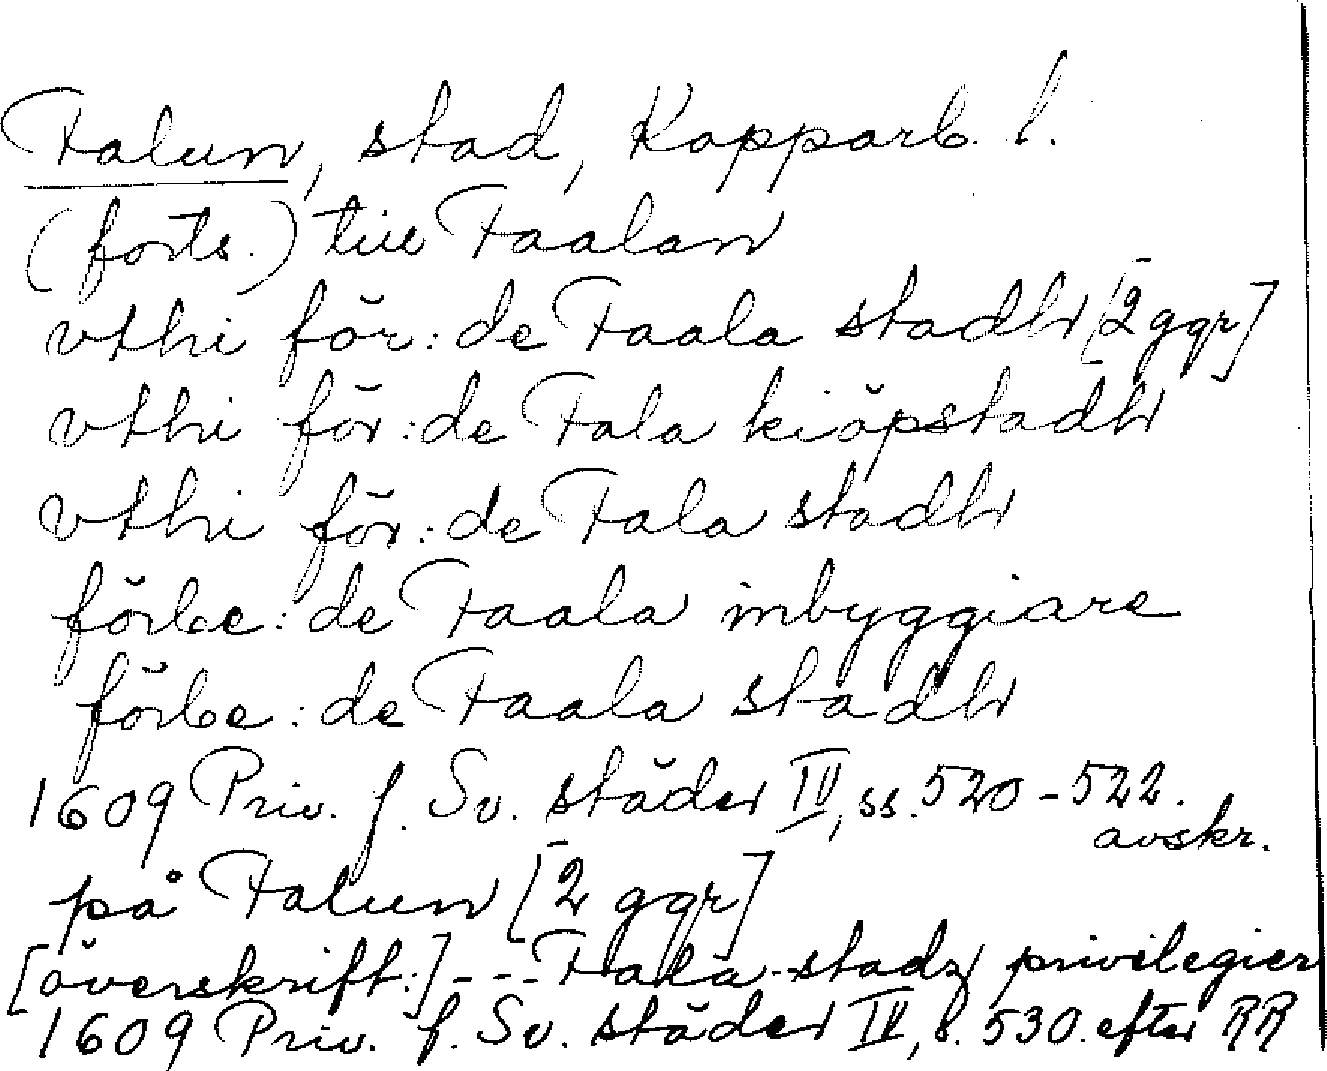 Falun, stad, Kopparb. l.
(forts.) till Faalan
vthi för:de Faala stadh [2 ggr]
vthi för:de Fala kiöpstadh
vthi för:de Fala stadh
förbe:de Faala inbyggiare
förbe:de Faala stadh
1609 Priv. f. Sv. städer IV, ss. 520-522.
avskr.
på Falun [2 ggr]
[överskrift:] --- Fala stadz privilegier
1609 Priv. f. Sv. städer IV, s. 530. efter RR